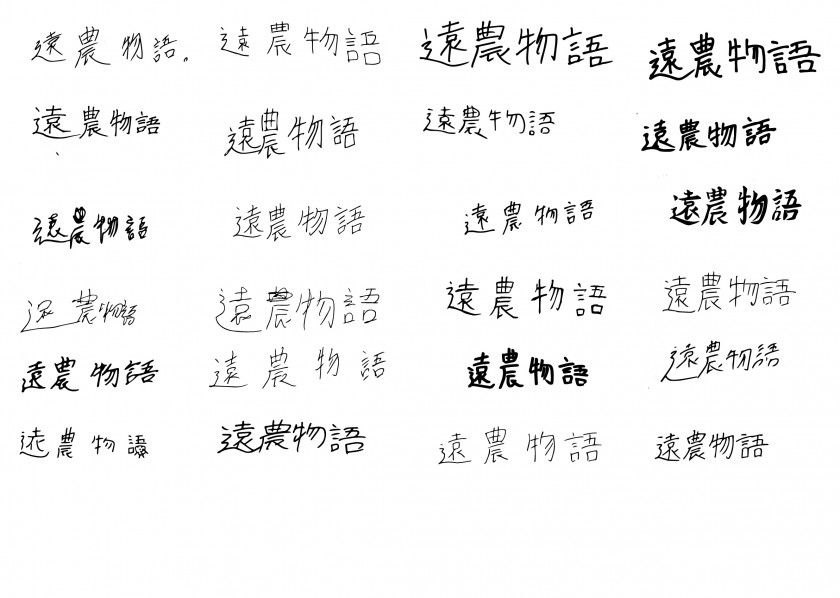 遠農物語。 遠農物語 遠農物語 遠農物語
遠農物語 遠農物語 遠農物語 遠農物語
遠農物語 遠農物語 遠農物語 遠農物語
遠農物語 遠農物語 遠農物語 遠農物語
遠農物語 遠農物語 遠農物語 遠農物語
遠農物語 遠農物語 遠農物語 遠農物語